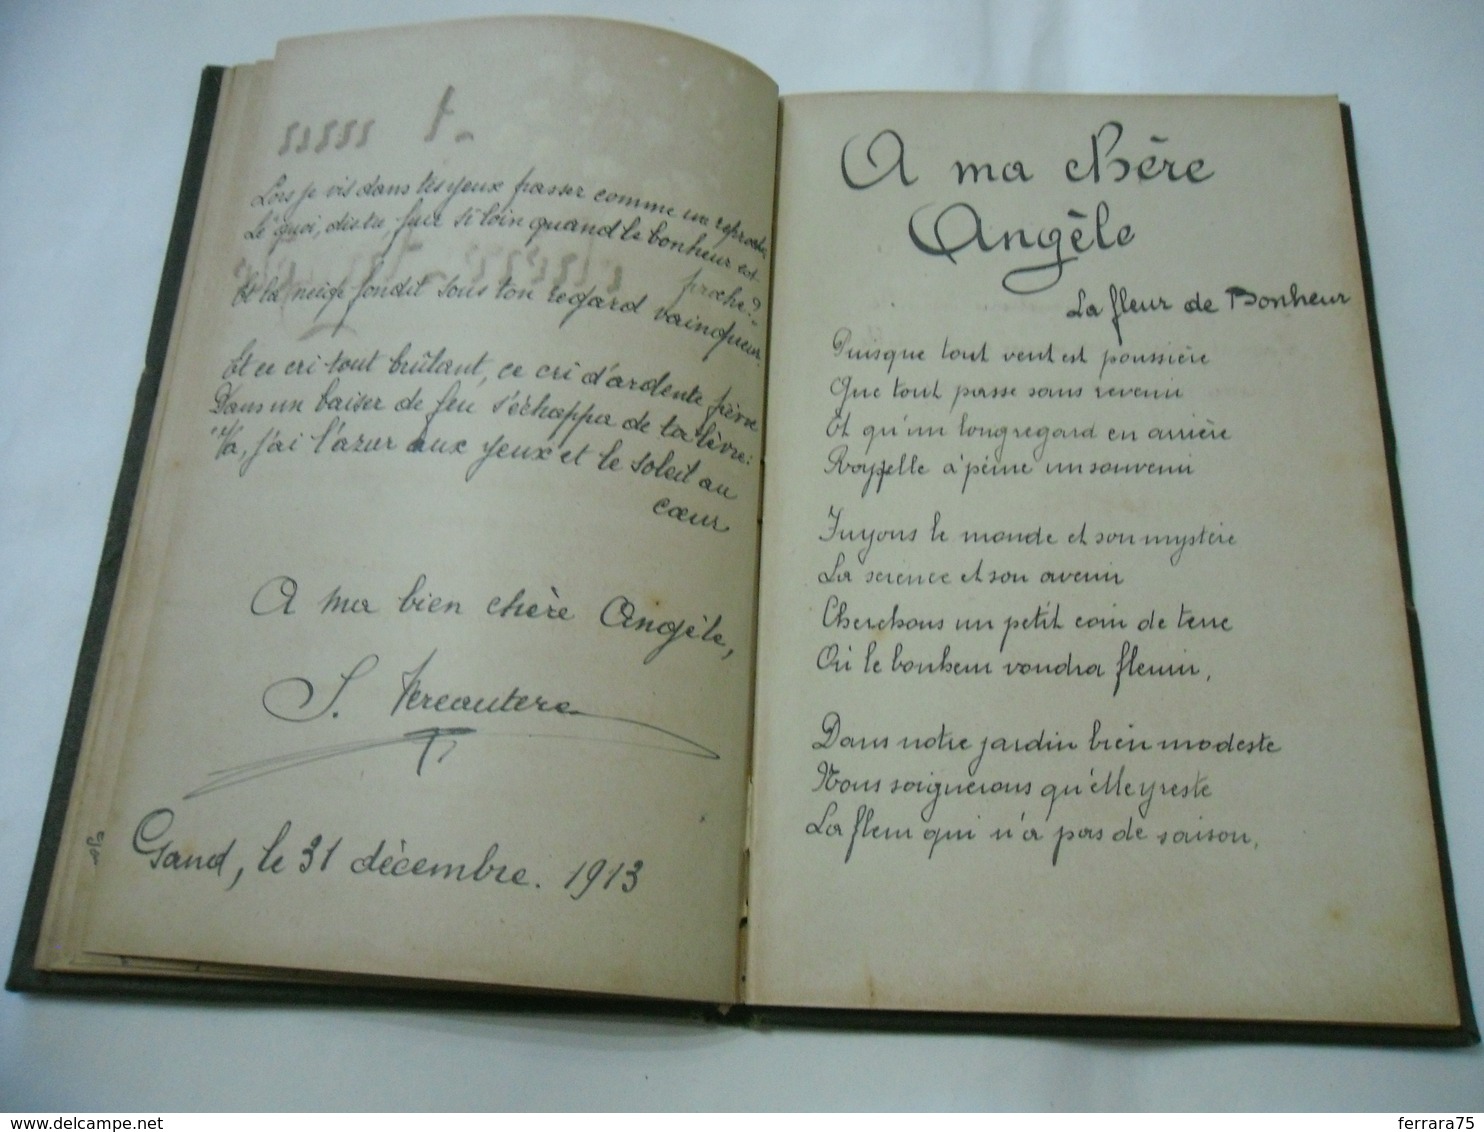 Lors je vis dans tes yeux passer comme un reproche,
Et quoi, dis-tu, fuir si loin quand le bonheur est
proche?"
Et la neige fondit sous ton regard vainqueur.
Et ce cri tout brûlant, ce cri d'ardente fièvre
Dans un baiser de feu s'échappa de ta lèvre:
"Va, j'ai l'azur aux yeux et le soleil au
cœur
A ma bien chère Angèle,
S. Vercautere
Gand, le 31 décembre. 1913
A ma chère
Angèle
La fleur de Bonheur
Puisque tout vent est poussière
Que tout passe sans revenir
Et qu'un long regard en arrière
Rappelle à peine un souvenir
Fuyons le monde et son mystère
La science et son avenir
Cherchons un petit coin de terre
Où le bonheur voudra fleurir,
Dans notre jardin bien modeste
Nous soignerons qu'elle y reste
La fleur qui n'a pas de saison,
ferrara75